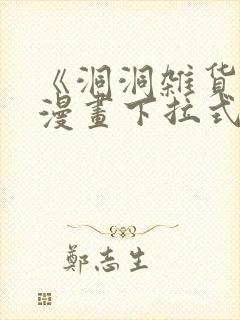 《洞洞雜货
漫畫下拉式
鄭志生